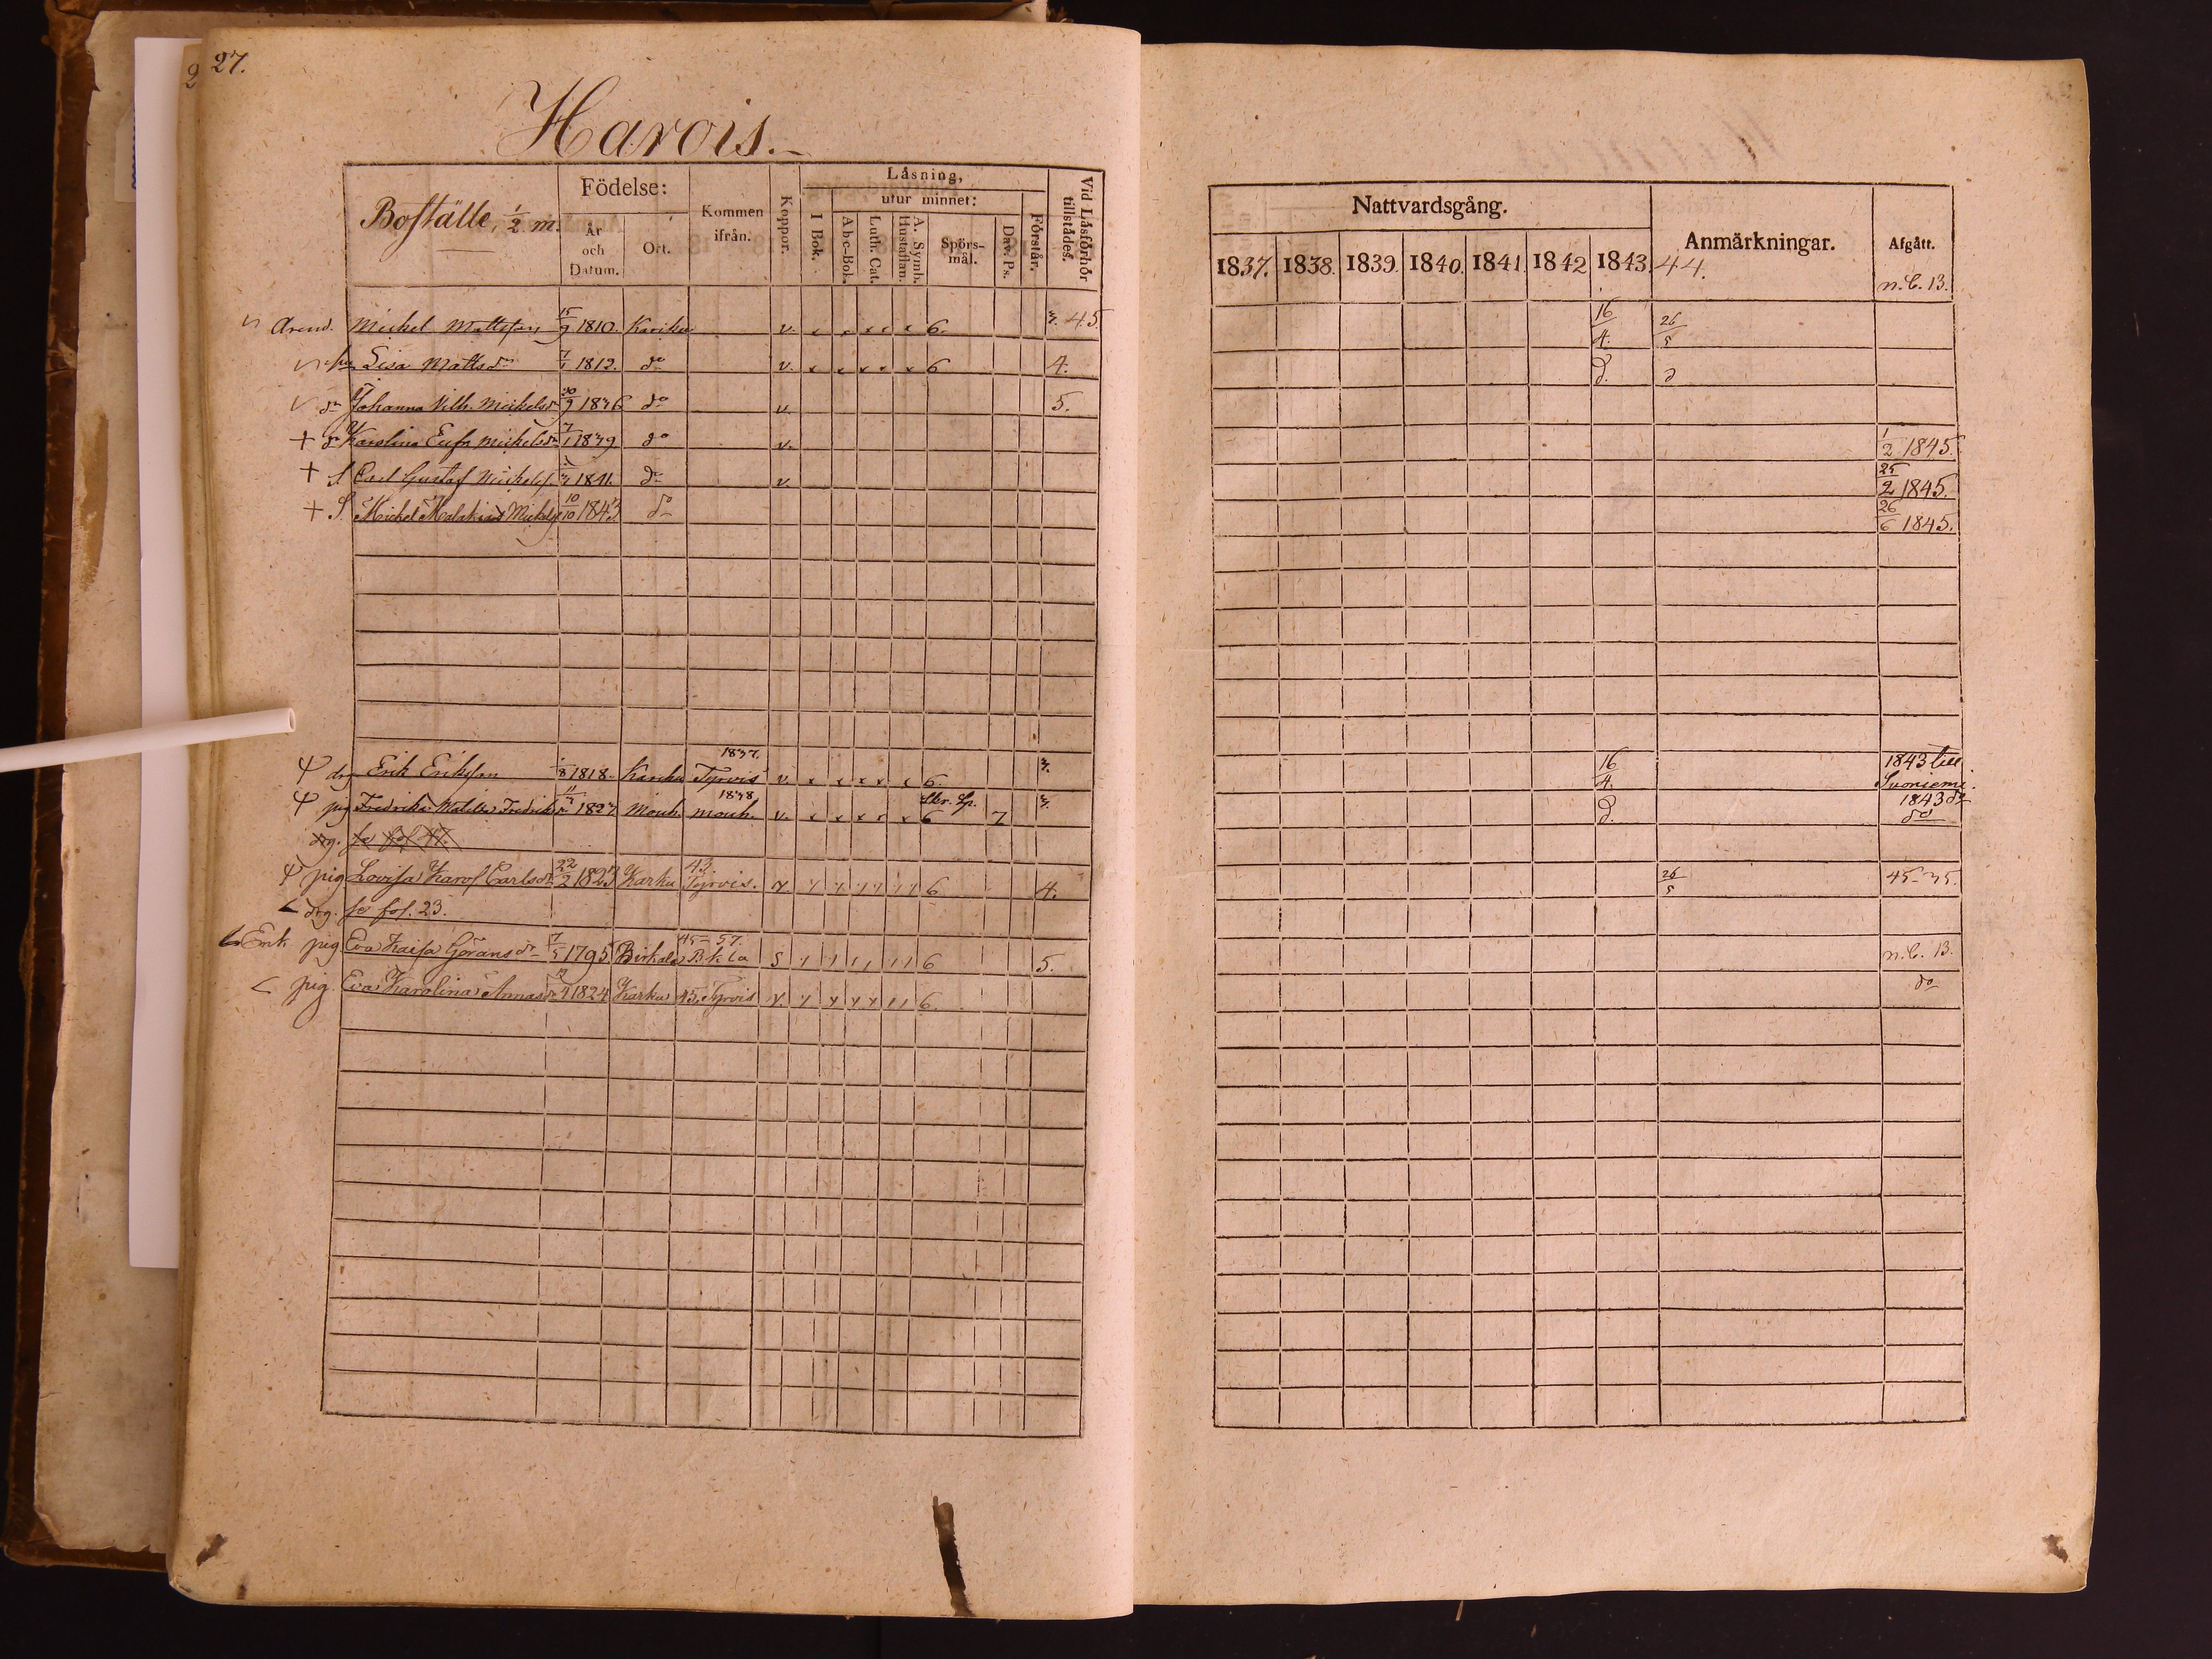 27.
Harois.
Boställe, 1/2 m.
Födelse:
År och Datum.
Ort.
Kommen ifrån.
Koppor.
Läsning,
utur minnet:
I Bok.
Abc-Bok.
Luth. Cat.
A. Symb. Hustaflan.
Spörsmål.
Dav. Ps.
Förstår.
Vid Läsförhör tillstädes.
Arend. Michel Mattsson 15/9 1810. Karku v. x x x x x 6. 3. 4.5.
Lisa Mattsdr 1812. do v. x x x x x 6 4.
dr Johanna Vilh. Michelsdr 30/9 1836 do v. 5.
+ dr Karolina Eufr. Michelsdr 7/1 1839 do v.
+ S. Carl Gustaf Michelss. 1841. do v.
+ S. Michel Malakias Michelss. 10/10 1843 do
drg Erik Eriksson 1818. Karku 1837. Tyrvis v. x x x x x 6 3.
pig Fredrika Matilda Fredriksdr 1823 Mouh. 1838 mouh. v. x x x x x Skr. Sp. 6 7 3.
drg. se fol 47.
pig Lovisa Karol. Carlsdr 22/2 1823 Karku 43 Tyrvis. 6 4.
drg. se fol. 23.
Enk. pig Eva Kaisa Göransdr 1795 Birkala 45-57. B-k la 6 5.
pig. Eva Karolina Annasdr 1824 Karku 45, Tyrvis 6.
Nattvardsgång.
1837. 1838. 1839. 1840. 1841. 1842 1843. 44.
Anmärkningar.
Afgått.
n. C. 13.
16/4. 26/5
d. d
1/2 1845.
25/2 1845.
26/6 1845.
16/4. 1843 till Suoniemi.
d. 1843 do do
26/5 45-35.
n. C. 13.
do